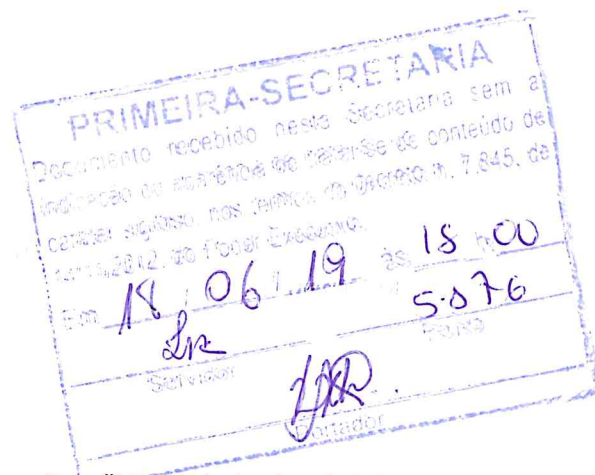 PRIMEIRA-SECRETARIA
Documento recebido nesta Secretaria sem a
indicação ou aparência de tratar-se de conteúdo de
caráter sigiloso, nos termos do Decreto n. 7.845, de
14/11/2012, do Poder Executivo.
Em 18 / 06 / 19 às 18 h 00
5.876
Servidor Ponto
Portador